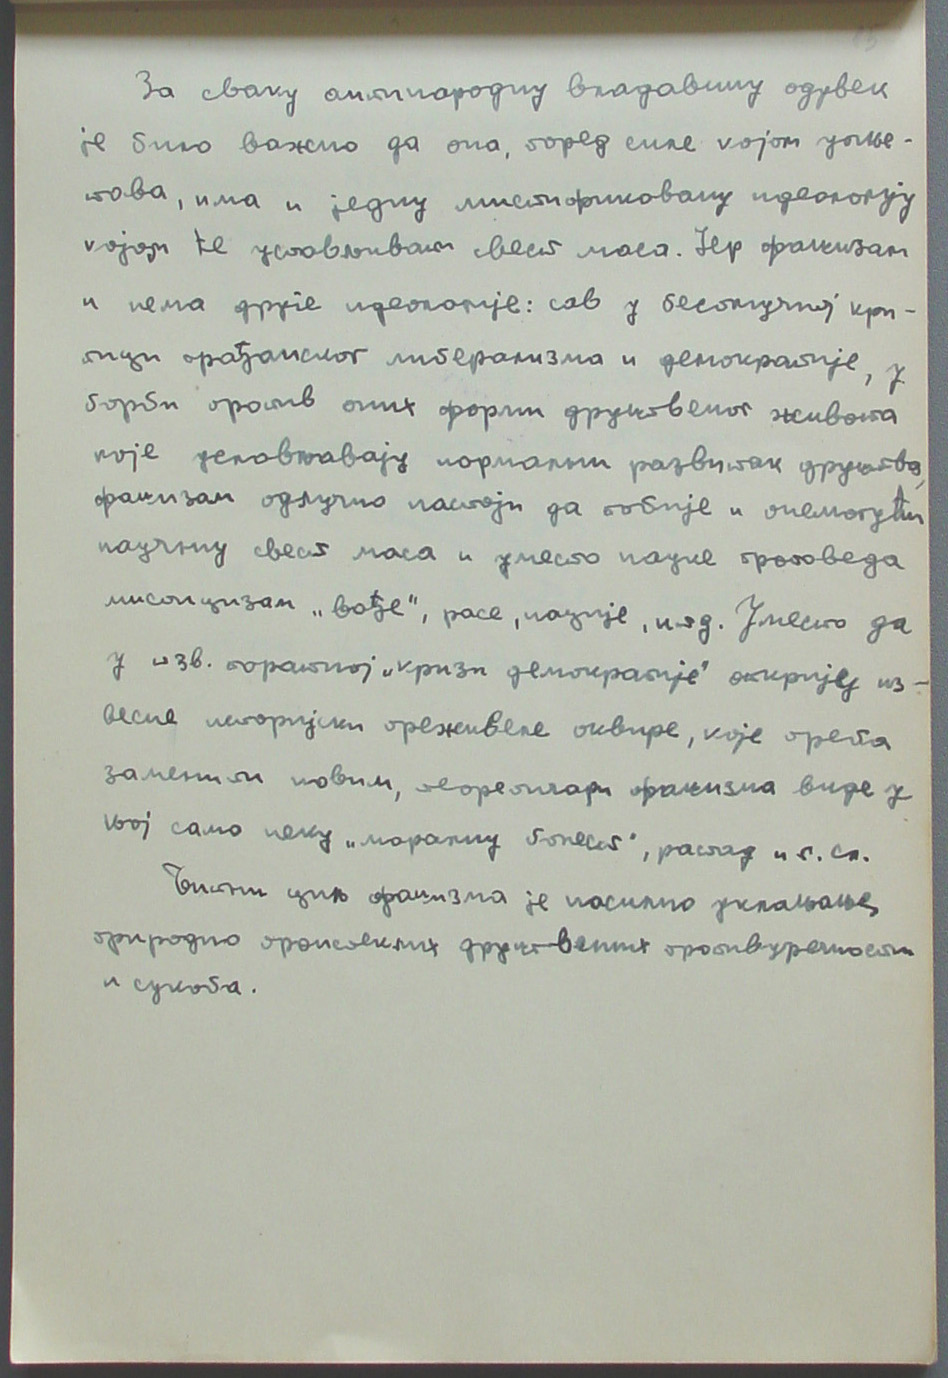 За сваку антинародну владавину одувек
је било важно да она, поред силе којом угње-
тава, има и једну мистификовану идеологију
којом ће успављивати свест маса. Јер фашизам
и нема друге идеологије: сав у бесомучној кри-
тици грађанског либерализма и демократије, у
борби против оних форми друштвеног живота
које условљавају нормални развитак друштва,
фашизам одлучно настоји да побије и онемогући
научну свест маса и уместо науке проповеда
мистицизам „вође", расе, нације, итд. Уместо да
у тзв. поратној „кризи демократије" открије из-
весне историјски преживеле оквире, које треба
заменити новим, теоретичари фашизма виде у
њој само неку „моралну болест", распад и т. сл.
Битни циљ фашизма је насилно уклањање
природно проистеклих друштвених противуречности
и сукоба.